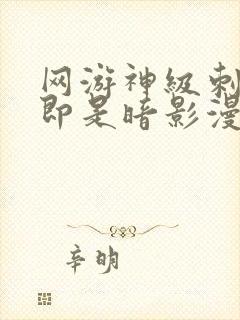 网游神级刺
即是暗影漫
辛明